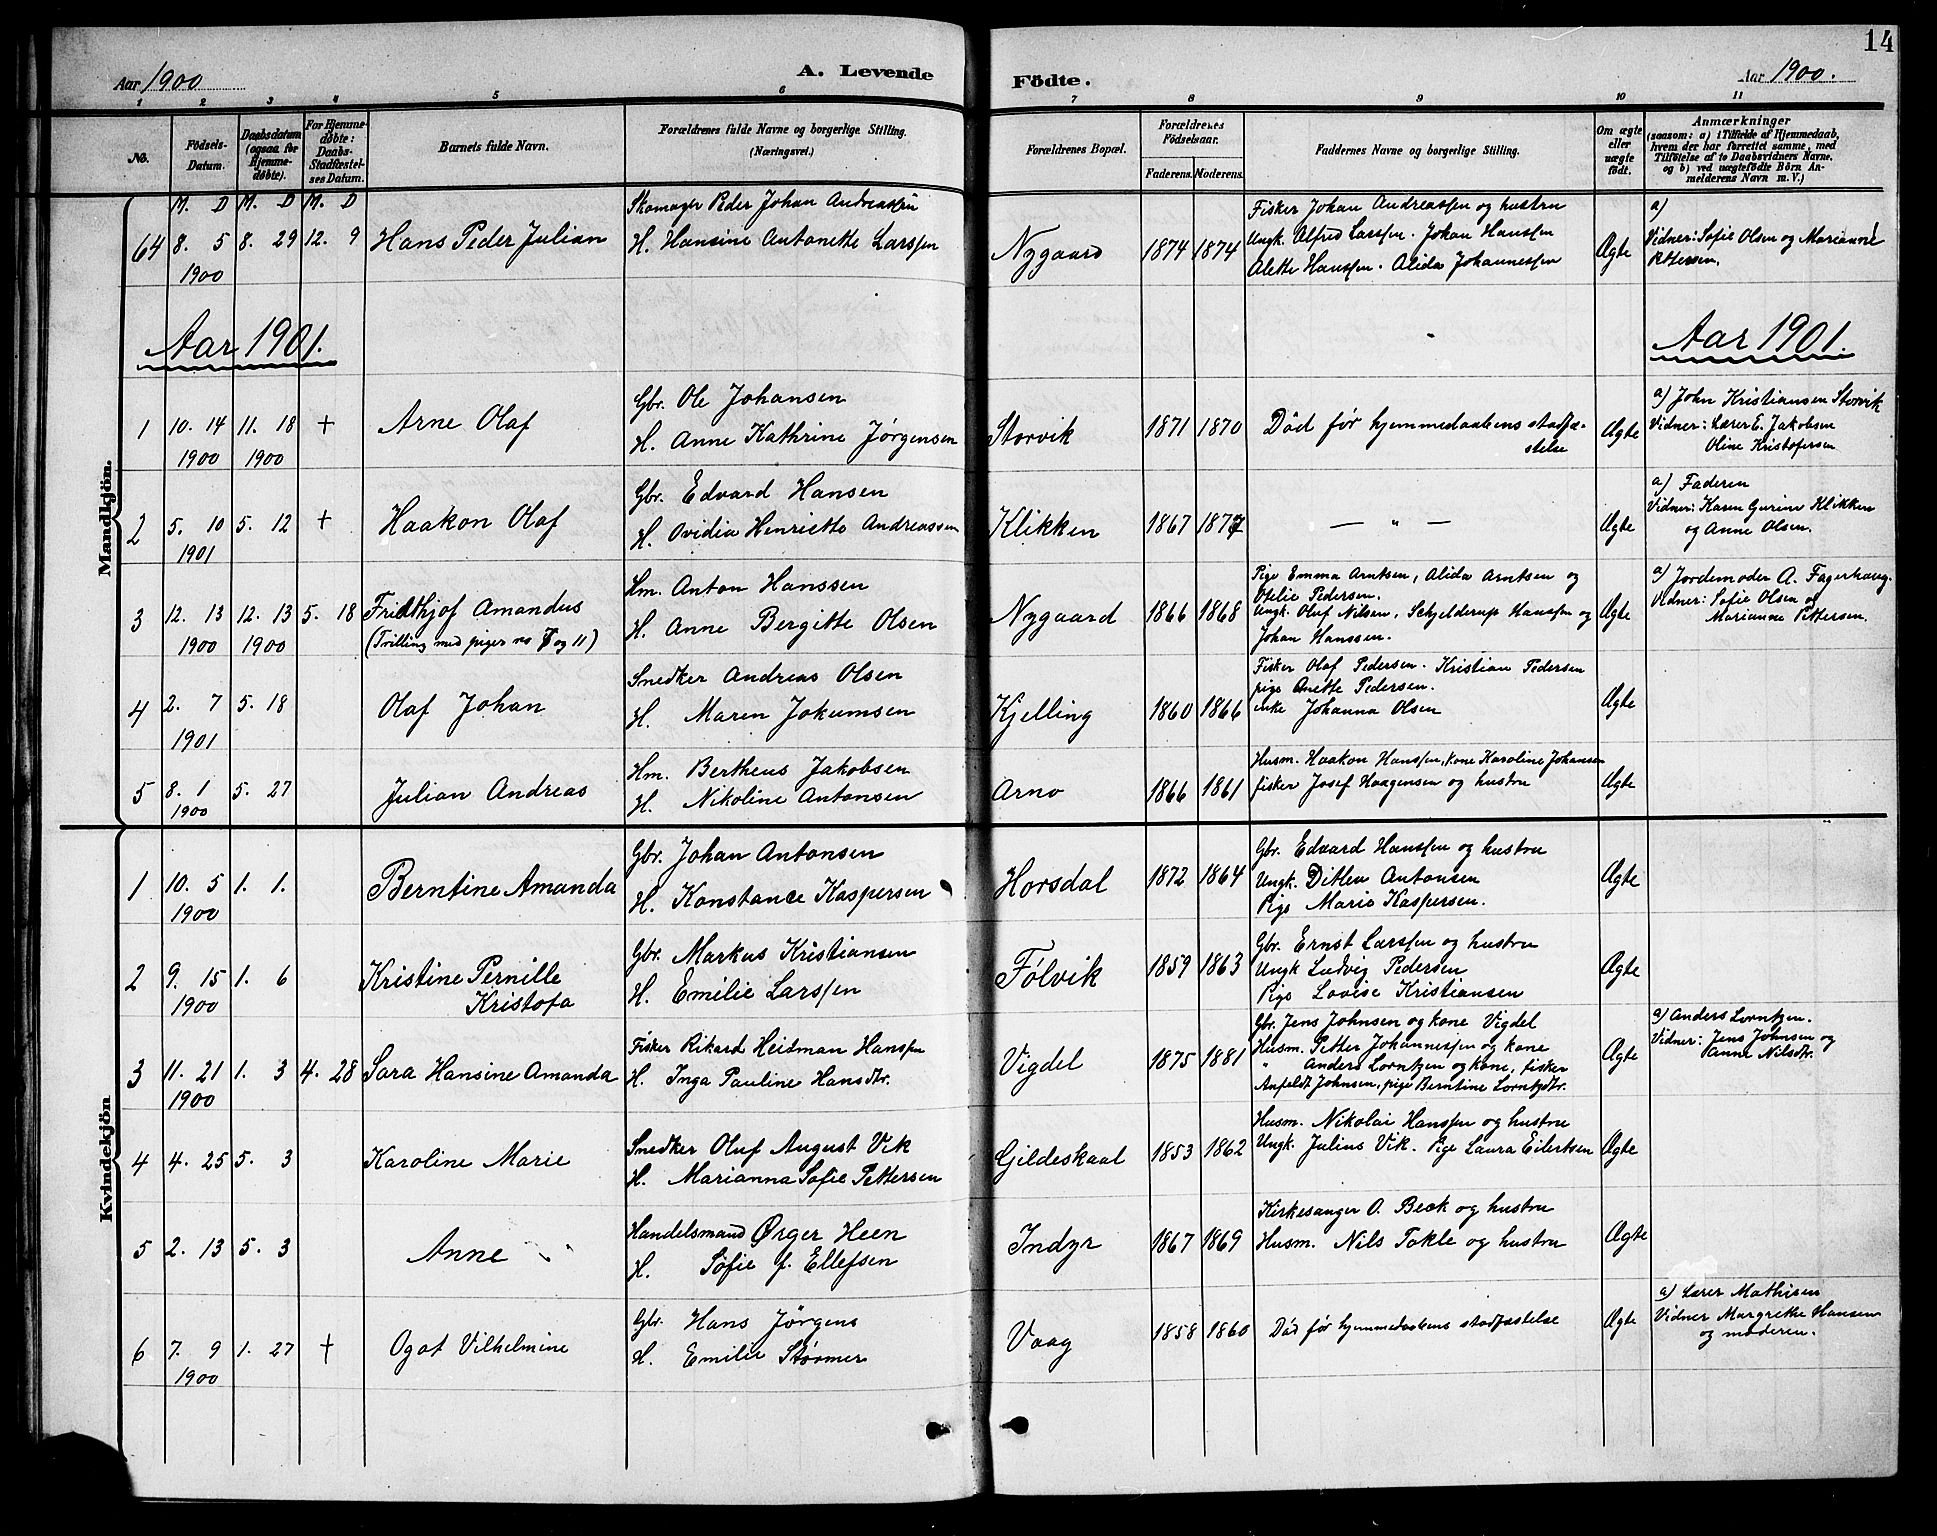 14
Aar 1900
A. Levende
Födte.
Aar 1900.
1 2 3 4 5 6 7 8 9 10 11
No.
Födsels-Datum.
Daabsdatum (ogsaa for Hjemme-döbte).
For Hjemme-döbte: Daabs-Stadfæstel-ses Datum.
Barnets fulde Navn.
Forældrenes fulde Navne og borgerlige Stilling.
(Næringsvei.)
Forældrenes Bopæl.
Forældrenes Födselsaar.
Faderens. Moderens.
Faddernes Navne og borgerlige Stilling.
Om ægte eller uægte födt.
Anmærkninger
(saasom: a) i Tilfælde af Hjemmedaab, hvem der har forrettet samme, med Tilföielse af to Daabsvidners Navne, og b) ved uægtefödte Börn An-melderens Navn m. V.)
Mandkjön.
M. D M. D M. D
64 8. 5 1900 8. 29 12. 9 Hans Peder Julian
Skomager Peder Johan Andreassen
H. Hansine Antonette Larssen
Nygaard 1874 1874
Fisker Johan Andreassen og hustru
Ungk. Alfred Larssen. Johan Hanssen
Alette Hanssen. Alida Johannessen
Ægte
a)
Vidner: Sofie Olsen og Marianne
Pettersen.
Aar 1901.
Aar 1901.
1 10. 14 1900 11. 18 1900 + Arne Olaf
Gbr. Ole Johansen
H. Anne Kathrine Jørgensen
Storvik 1871 1870
Død før hjemmedaabens stadfæ-
stelse
Ægte
a) John Kristiansen Storvik
Vidner: Lærer E. Jakobsen
Oline Kristofersen
2 5. 10 1901 5. 12 + Haakon Olaf
Gbr. Edvard Hansen
H. Ovidia Henriette Andreassen
Klikken 1867 1877
— " —
Ægte
a) Faderen
Vidner: Karen Gurine Klikken
og Anne Olsen.
3 12. 13 1900 12. 13 1900 5. 18 Fridthjof Amandus
(Trilling med piger no 7 og 11)
Hm. Anton Hanssen
H. Anne Bergitte Olsen
Nygaard 1866 1868
Pige Emma Arntsen, Alida Arntsen og
Ofelie Pedersen.
Ungk. Oluf Nilsen, Schjelderup Hanssen og
Johan Hanssen.
Ægte
a) Jordemoder A. Fagerhaug.
Vidner: Sofie Olsen og
Marianne Pettersen.
4 2. 7 1901 5. 18 Olaf Johan
Snedker Andreas Olsen
H. Maren Jokumsen
Kjelling 1860 1866
Fisker Olaf Pedersen. Kristian Pedersen
pige Anette Pedersen.
enke Johanna Olsen
Ægte
5 8. 1 1900 5. 27 Julian Andreas
Hm. Bertheus Jakobsen
H. Nikoline Antonsen
Arno 1866 1861
Husm. Haakon Hanssen, kone Karoline Johansen
fisker Josef Haagensen og hustru
Ægte
Kvindekjön
1 10. 5 1900 1. 1. Berntine Amanda
Gbr. Johan Antonsen
H. Konstance Kaspersen
Horsdal 1872 1864
Gbr. Edvard Hanssen og hustru
Ungk. Ditlev Antonsen
Pige Marie Kaspersen.
Ægte
2 9. 15 1900 1. 6 Kristine Pernille
Kristofa
Gbr. Markus Kristiansen
H. Emilie Larssen
Følvik 1859 1863
Gbr. Ernst Larssen og hustru
Ungk Ludvig Pedersen
Pige Lovise Kristiansen
Ægte
3 11. 21 1900 1. 3 4. 28 Sara Hansine Amanda
Fisker Rikard Heitman Hanssen
H. Inga Pauline Hansdtr.
Vigdel 1875 1881
Gbr. Jens Johnsen og kone Vigdel
Husm. Petter Johannessen og kone
" Anders Lorntzen og kone, fisker
Anfeldt Johnsen, pige Berntine Lorntzdtr.
Ægte
a) Anders Lorntzen.
Vidner: Jens Johnsen og
Anne Nilsdtr.
4 4. 25 5. 3 Karoline Marie
Snedker Oluf August Vik
H. Marianna Sofie Pettersen
Gildeskaal 1853 1862
Husm. Nikolai Hanssen og hustru
Ungk. Julius Vik. Pige Laura Eilertsen
Ægte
5 2. 13 5. 3 Anne
Handelsmand Ørger Heen
H. Sofie f. Ellefsen
Indyr 1867 1869
Kirkesanger O. Beck og hustru
Husm. Nils Tokle og hustru
Ægte
6 7. 9 1900 1. 27 + Ogot Vilhelmine
Gbr. Hans Jørgens
H. Emilie Størmer
Vaag 1858 1860
Død før hjemmedaabens stadfæstelse
Ægte
a) Lærer Mathisen
Vidner Margrethe Hansen
og moderen.